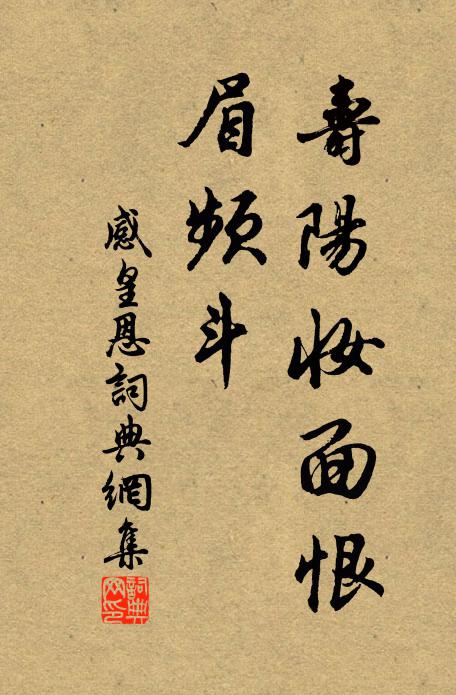 壽陽妝面恨
眉頻斗
感皇恩詞典網集
詞典網印